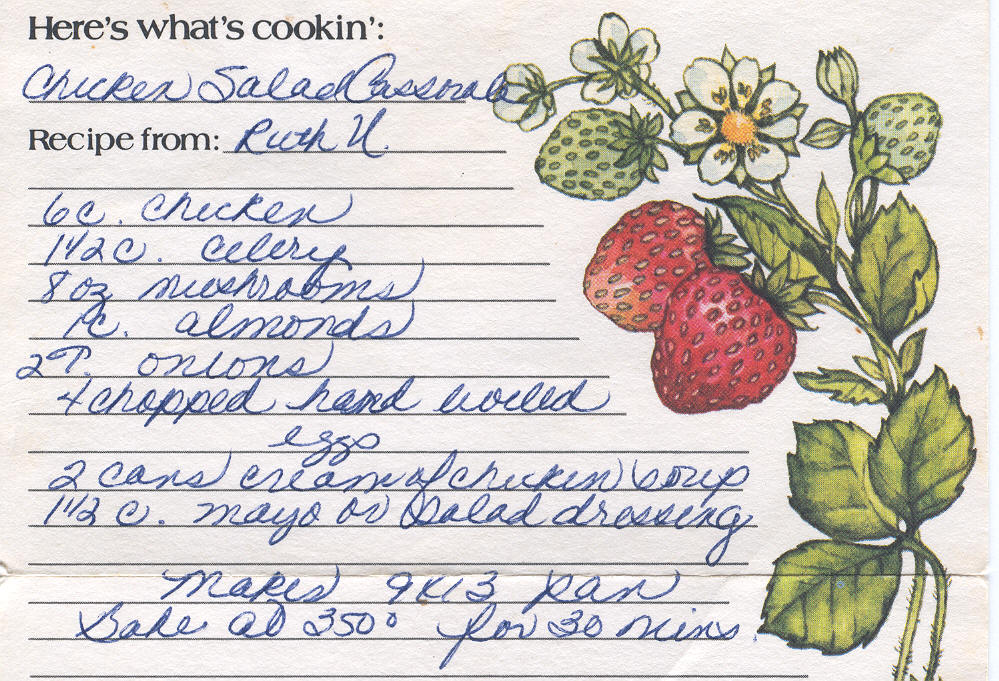 Here's what's cookin':
Chicken Salad Casserole
Recipe from: Ruth U.
6 c. chicken
1 1/2 c. celery
8 oz mushrooms
1 c. almonds
2 T. onions
4 chopped hard boiled
eggs
2 cans cream of chicken soup
1 1/2 c. mayo or salad dressing
Makes 9x13 pan
Bake at 350° for 30 mins.